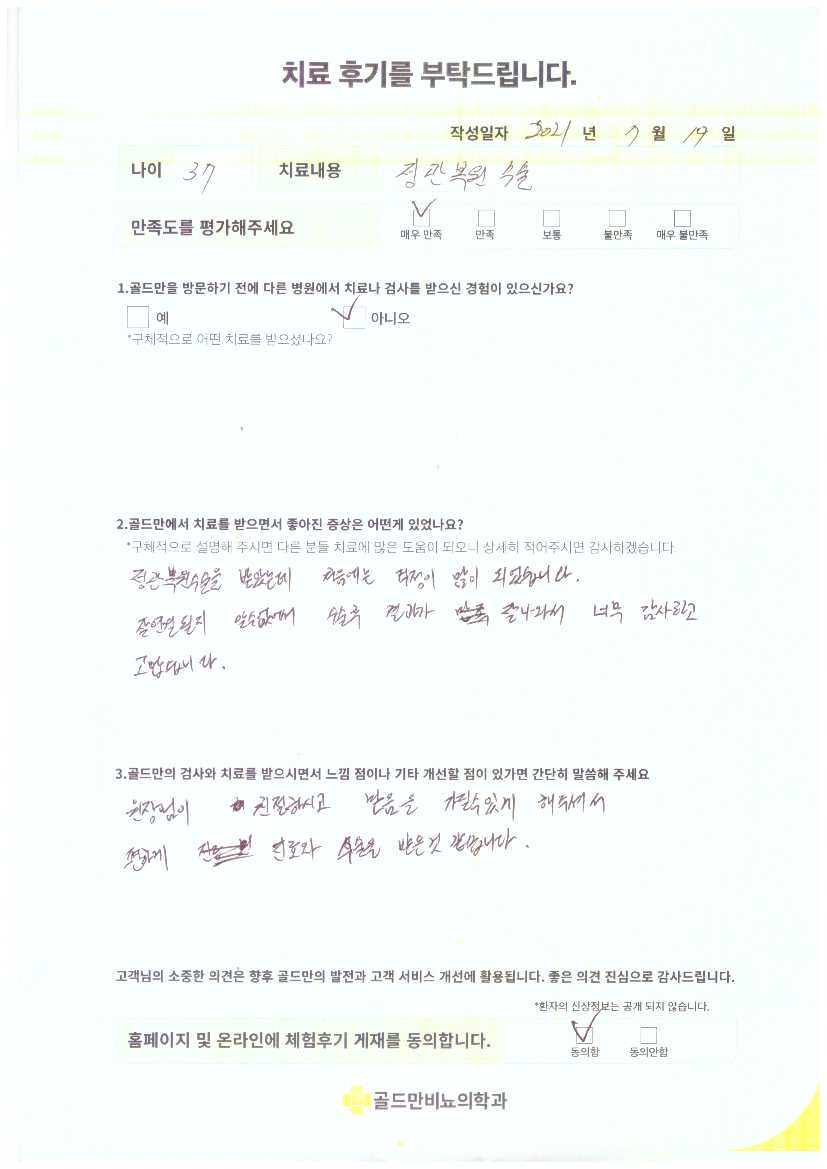 치료 후기를 부탁드립니다.
작성일자 2021 년 7 월 19 일
나이 37 치료내용 정관복원 수술
만족도를 평가해주세요 매우 만족 만족 보통 불만족 매우 불만족
1.골드만을 방문하기 전에 다른 병원에서 치료나 검사를 받으신 경험이 있으신가요?
예 아니오
*구체적으로 어떤 치료를 받으셨나요?
2.골드만에서 치료를 받으면서 좋아진 증상은 어떤게 있었나요?
*구체적으로 설명해 주시면 다른 분들 치료에 많은 도움이 되오니 상세히 적어주시면 감사하겠습니다.
정관복원수술을 받았는데 처음에는 걱정이 많이 되었습니다.
잘연결될지 알수없어서 수술후 결과가 잘나와서 너무 감사하고
고맙습니다.
3.골드만의 검사와 치료를 받으시면서 느낌 점이나 기타 개선할 점이 있가면 간단히 말씀해 주세요
원장님이 친절하시고 믿음을 가질수있게 해주셔서
편하게 진료와 수술을 받은것 같습니다.
고객님의 소중한 의견은 향후 골드만의 발전과 고객 서비스 개선에 활용됩니다. 좋은 의견 진심으로 감사드립니다.
*환자의 신상정보는 공개 되지 않습니다.
홈페이지 및 온라인에 체험후기 게재를 동의합니다. 동의함 동의안함
골드만비뇨의학과